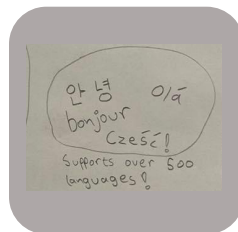 안녕 Olá
bonjour
Cześć!
Supports over 500
languages!